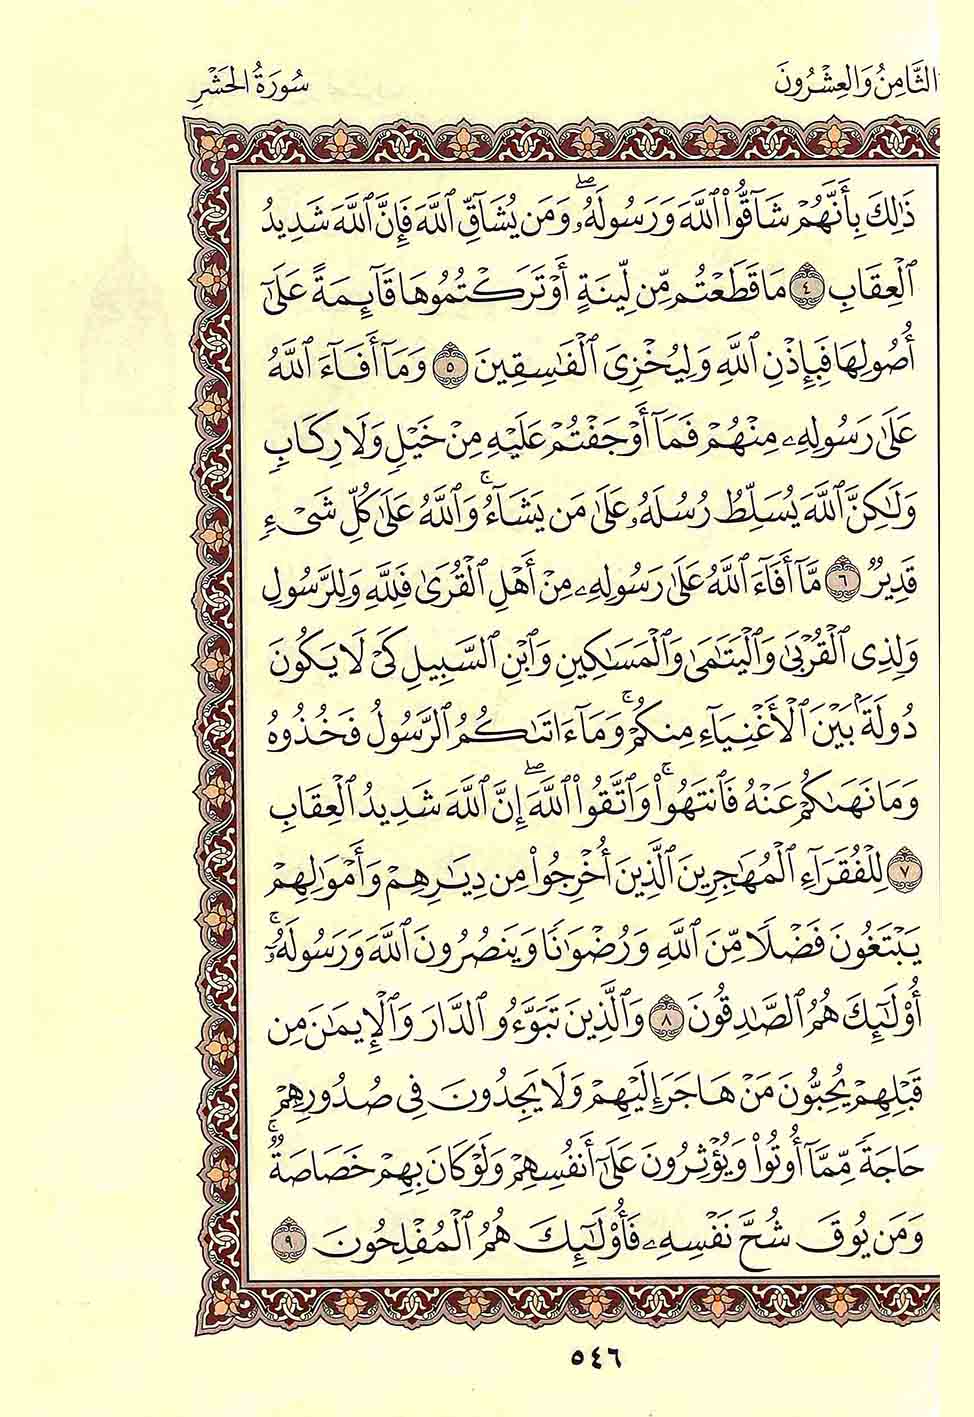 الثَّامِنُ وَالعِشْرُونَ
سُورَةُ الحَشْرِ
ذَٰلِكَ بِأَنَّهُمْ شَآقُّوا۟ ٱللَّهَ وَرَسُولَهُۥ ۖ وَمَن يُشَآقِّ ٱللَّهَ فَإِنَّ ٱللَّهَ شَدِيدُ
ٱلْعِقَابِ ٤ مَا قَطَعْتُم مِّن لِّينَةٍ أَوْ تَرَكْتُمُوهَا قَآئِمَةً عَلَىٰٓ
أُصُولِهَا فَبِإِذْنِ ٱللَّهِ وَلِيُخْزِىَ ٱلْفَـٰسِقِينَ ٥ وَمَآ أَفَآءَ ٱللَّهُ
عَلَىٰ رَسُولِهِۦ مِنْهُمْ فَمَآ أَوْجَفْتُمْ عَلَيْهِ مِنْ خَيْلٍ وَلَا رِكَابٍ
وَلَـٰكِنَّ ٱللَّهَ يُسَلِّطُ رُسُلَهُۥ عَلَىٰ مَن يَشَآءُ ۚ وَٱللَّهُ عَلَىٰ كُلِّ شَىْءٍ
قَدِيرٌ ٦ مَّآ أَفَآءَ ٱللَّهُ عَلَىٰ رَسُولِهِۦ مِنْ أَهْلِ ٱلْقُرَىٰ فَلِلَّهِ وَلِلرَّسُولِ
وَلِذِى ٱلْقُرْبَىٰ وَٱلْيَتَـٰمَىٰ وَٱلْمَسَـٰكِينِ وَٱبْنِ ٱلسَّبِيلِ كَىْ لَا يَكُونَ
دُولَةًۢ بَيْنَ ٱلْأَغْنِيَآءِ مِنكُمْ ۚ وَمَآ ءَاتَىٰكُمُ ٱلرَّسُولُ فَخُذُوهُ
وَمَا نَهَىٰكُمْ عَنْهُ فَٱنتَهُوا۟ ۚ وَٱتَّقُوا۟ ٱللَّهَ ۖ إِنَّ ٱللَّهَ شَدِيدُ ٱلْعِقَابِ
٧ لِلْفُقَرَآءِ ٱلْمُهَـٰجِرِينَ ٱلَّذِينَ أُخْرِجُوا۟ مِن دِيَـٰرِهِمْ وَأَمْوَٰلِهِمْ
يَبْتَغُونَ فَضْلًا مِّنَ ٱللَّهِ وَرِضْوَٰنًا وَيَنصُرُونَ ٱللَّهَ وَرَسُولَهُۥٓ ۚ
أُو۟لَـٰٓئِكَ هُمُ ٱلصَّـٰدِقُونَ ٨ وَٱلَّذِينَ تَبَوَّءُو ٱلدَّارَ وَٱلْإِيمَـٰنَ مِن
قَبْلِهِمْ يُحِبُّونَ مَنْ هَاجَرَ إِلَيْهِمْ وَلَا يَجِدُونَ فِى صُدُورِهِمْ
حَاجَةً مِّمَّآ أُوتُوا۟ وَيُؤْثِرُونَ عَلَىٰٓ أَنفُسِهِمْ وَلَوْ كَانَ بِهِمْ خَصَاصَةٌ ۚ
وَمَن يُوقَ شُحَّ نَفْسِهِۦ فَأُو۟لَـٰٓئِكَ هُمُ ٱلْمُفْلِحُونَ ٩
٥٤٦